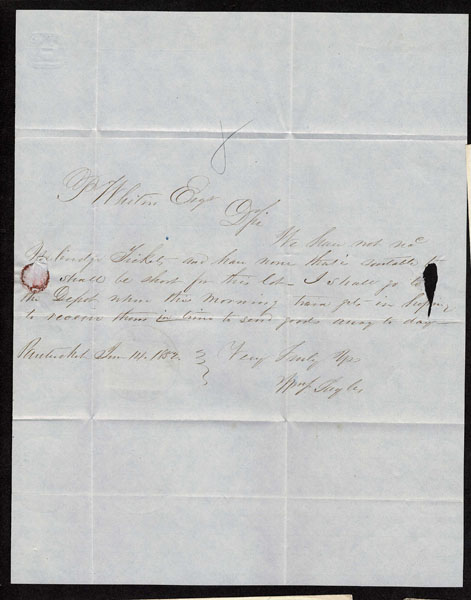 P Whitin Esqr
Dr Sir
We have not recd
Tickets and have none that's suitable to
shall be short for this lot - I shall go to
the Depot when this morning train gets in
to receive them in time to send goods away to day
Pawtucket Jan 14. 1852. Very Truly Yrs
Ingles